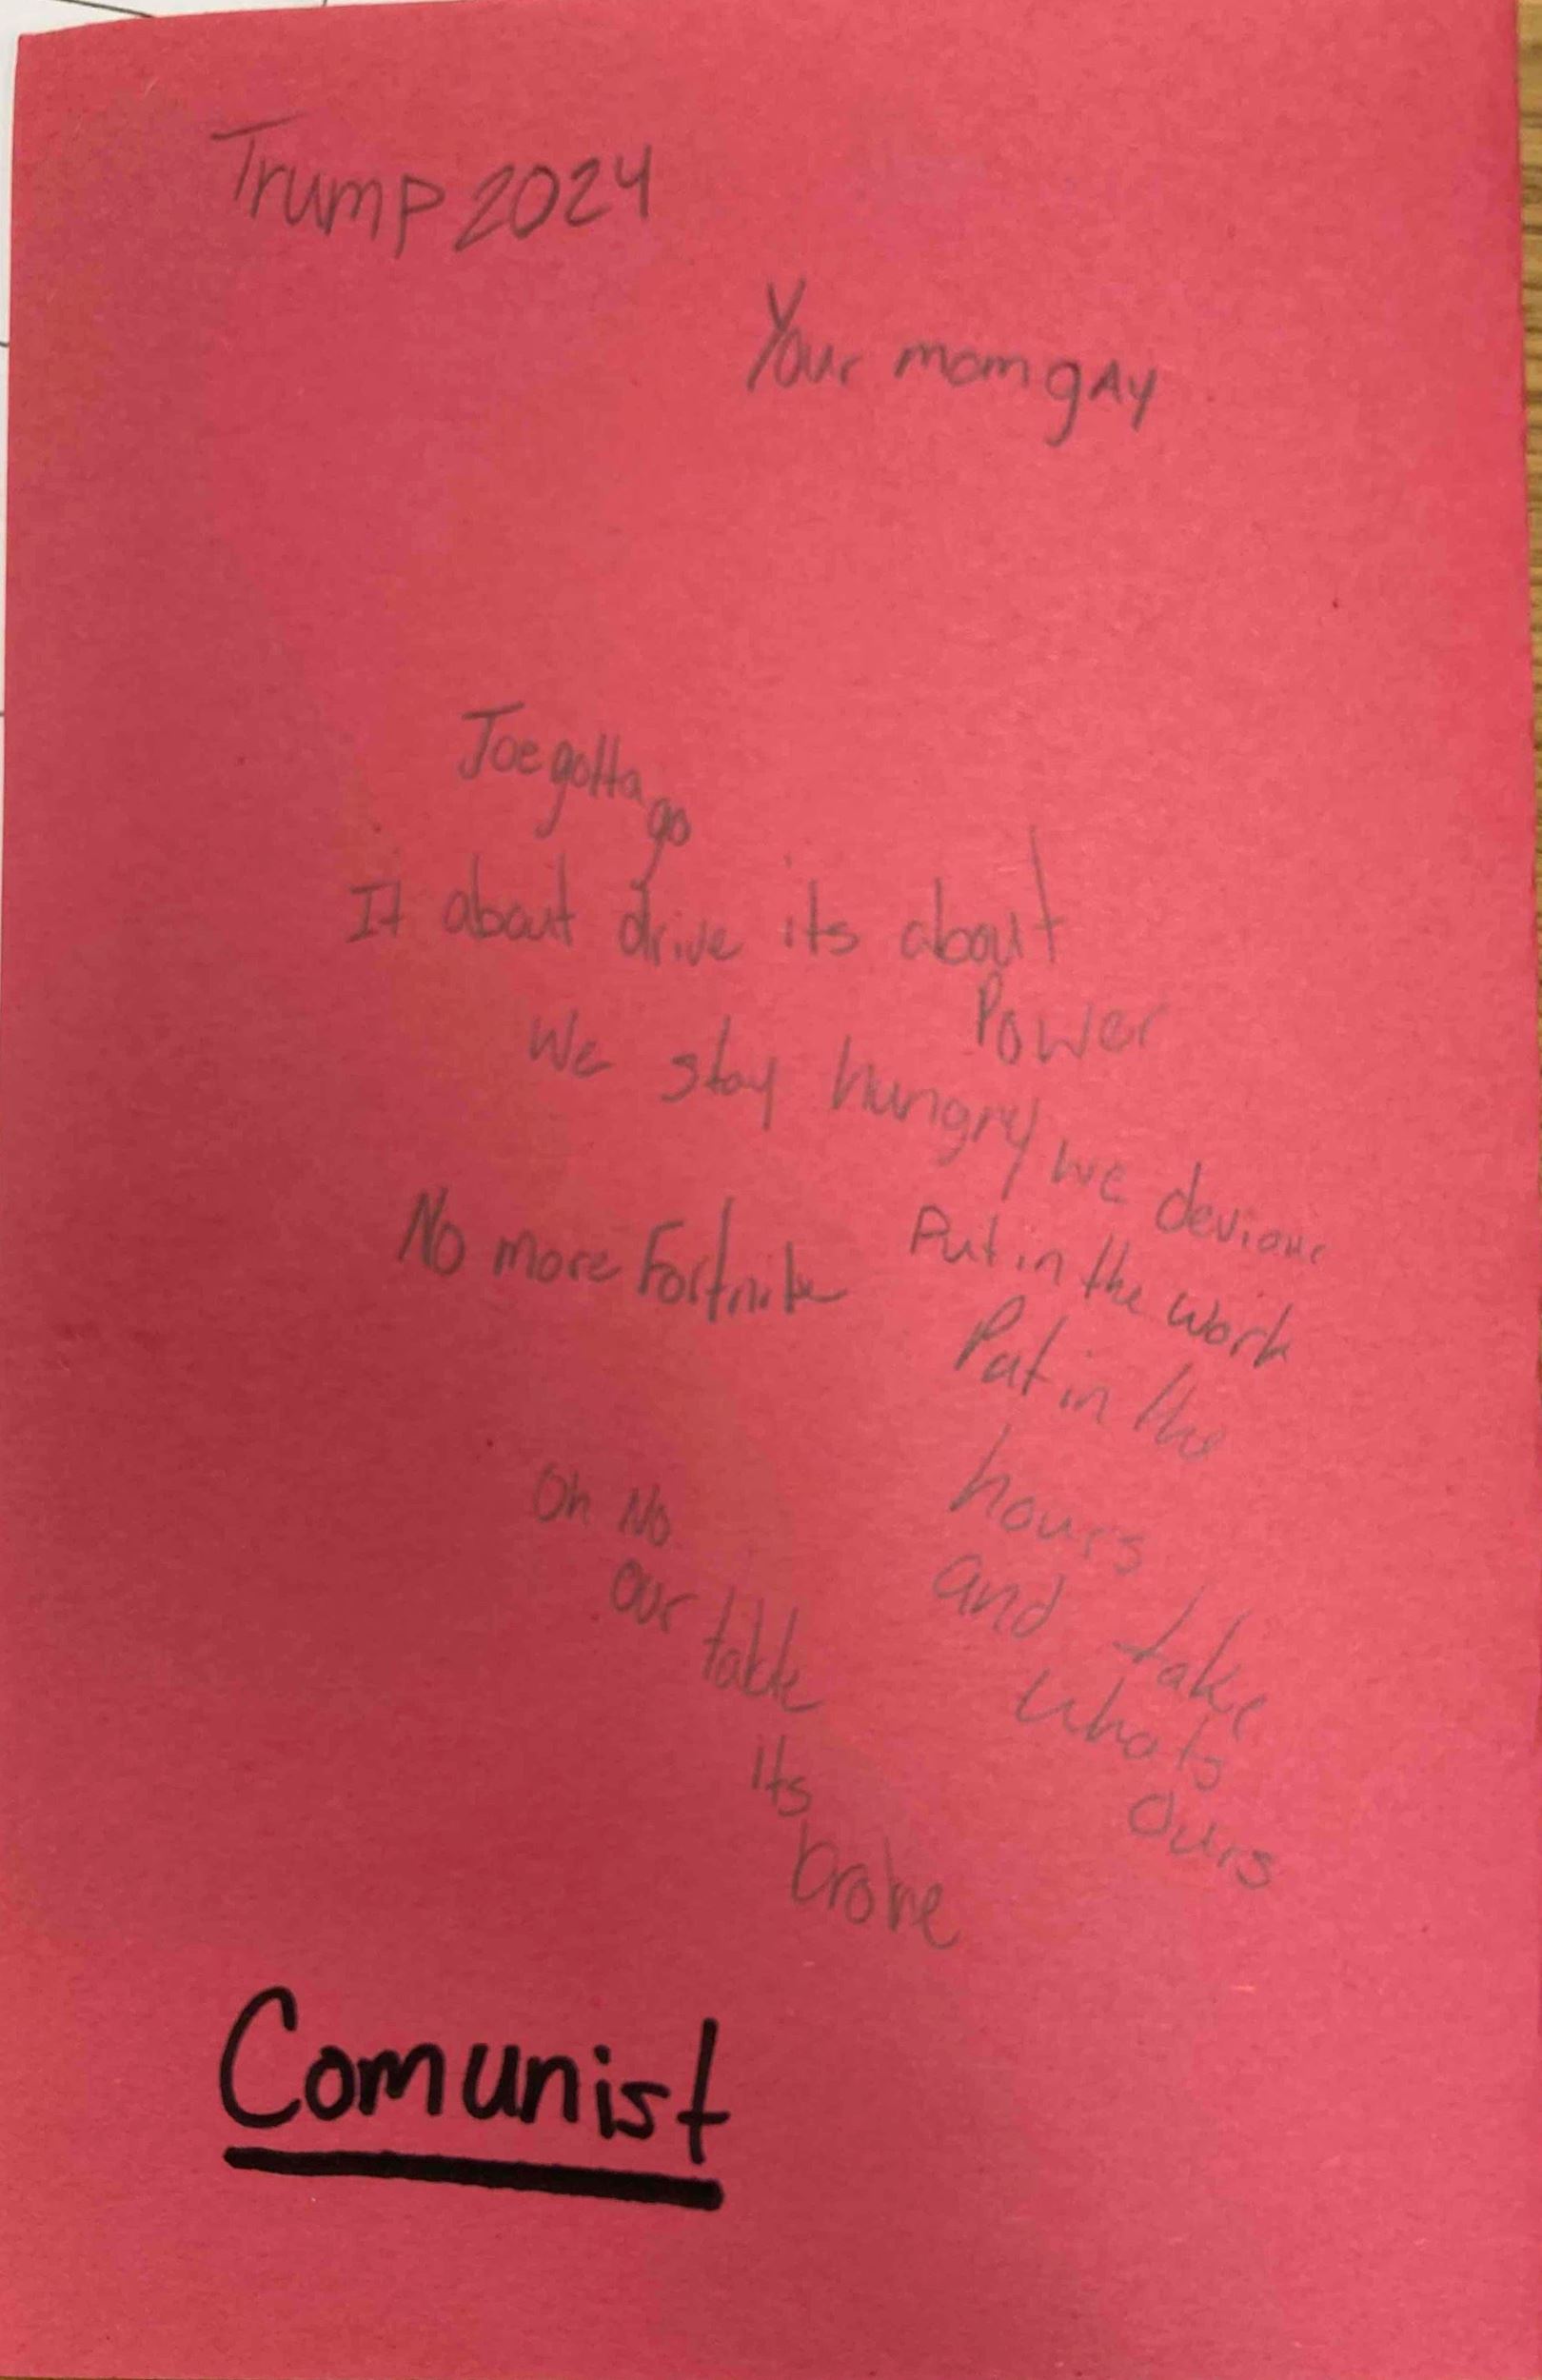 Trump 2024
Your mom gAy
Joe gotta go
It about drive its about
Power
We stay hungry we deviour
No more Fortnite
Put in the work
Put in the
hours
and take
whats
ours
Oh No
our table
its
broke
Comunist